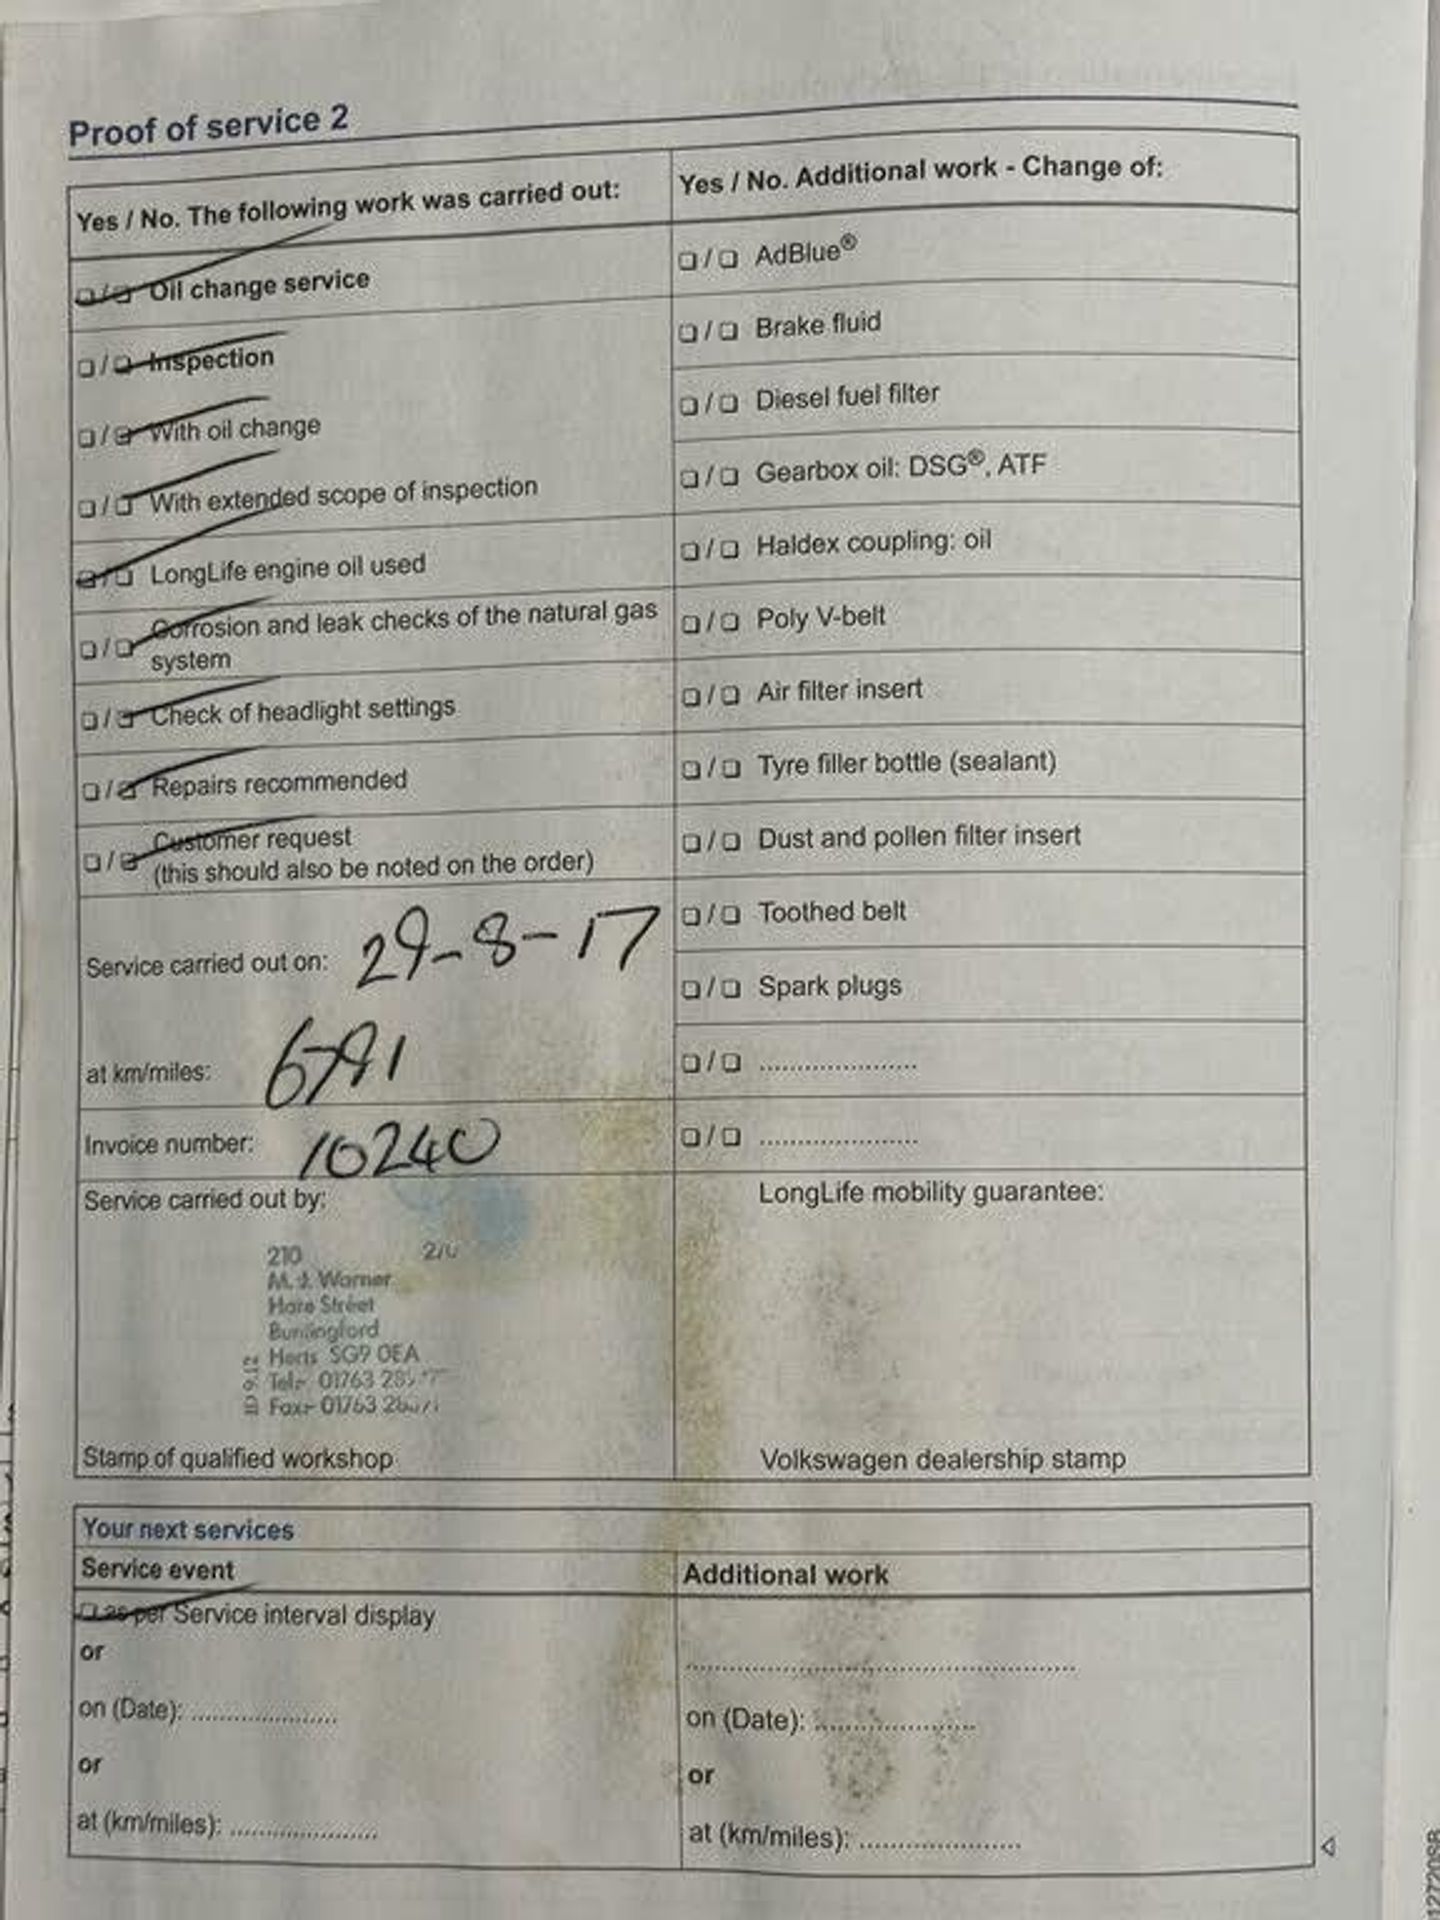 Proof of service 2
Yes / No. The following work was carried out:
❏ / ❏ Oil change service
❏ / ❏ Inspection
❏ / ❏ With oil change
❏ / ❏ With extended scope of inspection
❏ / ❏ LongLife engine oil used
❏ / ❏ Corrosion and leak checks of the natural gas
system
❏ / ❏ Check of headlight settings
❏ / ❏ Repairs recommended
❏ / ❏ Customer request
(this should also be noted on the order)
Service carried out on: 29-8-17
at km/miles: 6791
Invoice number: 10240
Service carried out by:
210
M. J. Warner
Hare Street
Buntingford
Herts SG9 0EA
Tel:- 01763
Fax:- 01763
Stamp of qualified workshop
Yes / No. Additional work - Change of:
❏ / ❏ AdBlue®
❏ / ❏ Brake fluid
❏ / ❏ Diesel fuel filter
❏ / ❏ Gearbox oil: DSG®, ATF
❏ / ❏ Haldex coupling: oil
❏ / ❏ Poly V-belt
❏ / ❏ Air filter insert
❏ / ❏ Tyre filler bottle (sealant)
❏ / ❏ Dust and pollen filter insert
❏ / ❏ Toothed belt
❏ / ❏ Spark plugs
❏ / ❏ ......................
❏ / ❏ ......................
LongLife mobility guarantee:
Volkswagen dealership stamp
Your next services
Service event
❏ as per Service interval display
or
on (Date): ....................
or
at (km/miles): ....................
Additional work
......................................................
on (Date): ......................
or
at (km/miles): ......................